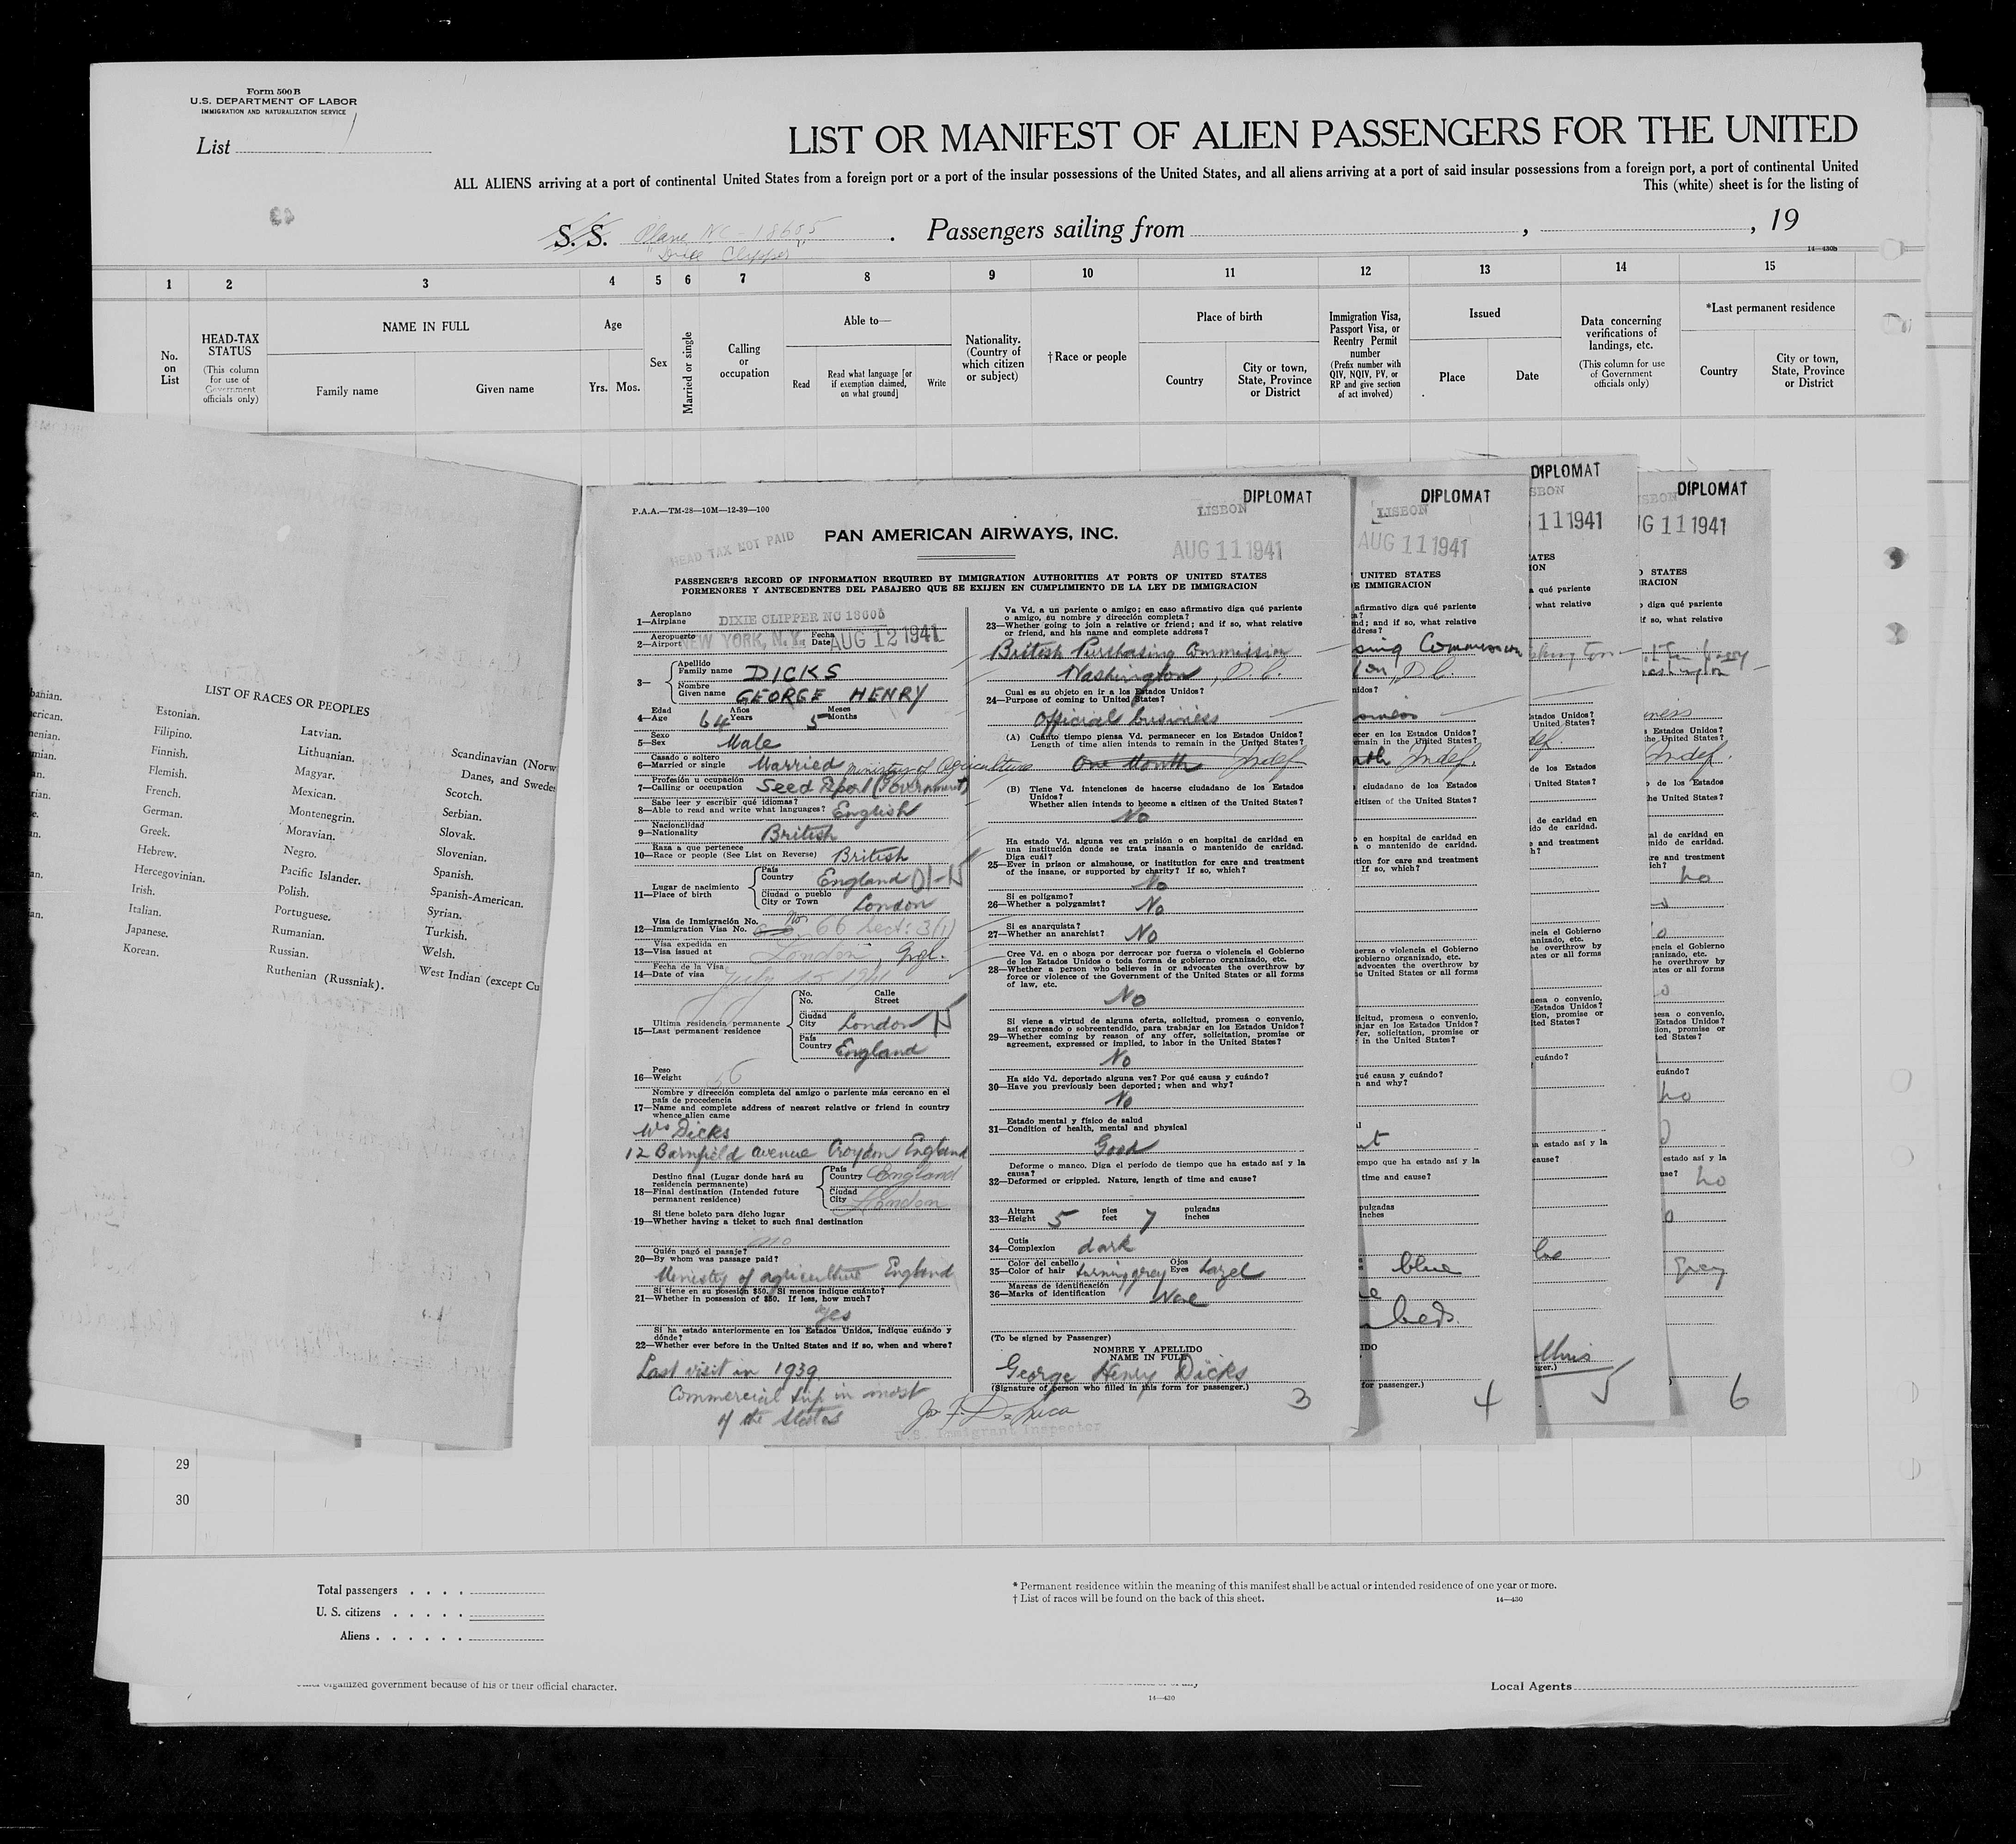 Form 500 B
U.S. DEPARTMENT OF LABOR
IMMIGRATION AND NATURALIZATION SERVICE
List 1
LIST OR MANIFEST OF ALIEN PASSENGERS FOR THE UNITED
ALL ALIENS arriving at a port of continental United States from a foreign port or a port of the insular possessions of the United States, and all aliens arriving at a port of said insular possessions from a foreign port, a port of continental United
This (white) sheet is for the listing of
S. S. Plane NC-18605 . Passengers sailing from , , 19
"Dixie Clipper"
14—430b
1 2 3 4 5 6 7 8 9 10 11 12 13 14 15
No. on List
HEAD-TAX STATUS
(This column for use of Government officials only)
NAME IN FULL
Family name Given name
Age
Yrs. Mos.
Sex
Married or single
Calling or occupation
Able to—
Read
Read what language [or if exemption claimed, on what ground]
Write
Nationality. (Country of which citizen or subject)
† Race or people
Place of birth
Country
City or town, State, Province or District
Immigration Visa, Passport Visa, or Reentry Permit number
(Prefix number with QIV, NQIV, PV, or RP and give section of act involved)
Issued
Place Date
Data concerning verifications of landings, etc.
(This column for use of Government officials only)
*Last permanent residence
Country
City or town, State, Province or District
LIST OF RACES OR PEOPLES
Estonian.
Filipino.
Finnish.
Flemish.
French.
German.
Greek.
Hebrew.
Hercegovinian.
Irish.
Italian.
Japanese.
Korean.
Latvian.
Lithuanian.
Magyar.
Mexican.
Montenegrin.
Moravian.
Negro.
Pacific Islander.
Polish.
Portuguese.
Rumanian.
Russian.
Ruthenian (Russniak).
Scandinavian (Norw
Danes, and Swedes
Scotch.
Serbian.
Slovak.
Slovenian.
Spanish.
Spanish-American.
Syrian.
Turkish.
Welsh.
West Indian (except Cu
P.A.A.—TM-28—10M—12-39—100
DIPLOMAT
LISBON
HEAD TAX NOT PAID
PAN AMERICAN AIRWAYS, INC.
AUG 11 1941
PASSENGER'S RECORD OF INFORMATION REQUIRED BY IMMIGRATION AUTHORITIES AT PORTS OF UNITED STATES
PORMENORES Y ANTECEDENTES DEL PASAJERO QUE SE EXIJEN EN CUMPLIMIENTO DE LA LEY DE IMMIGRACION
Aeroplano
1—Airplane DIXIE CLIPPER NC 18605
Aeropuerto Fecha
2—Airport NEW YORK, N.Y. Date AUG 12 1941
Apellido
3— Family name DICKS
Nombre
Given name GEORGE HENRY
Edad Años Meses
4—Age 64 Years 5 Months
Sexo
5—Sex Male
Casado o soltero
6—Married or single Married Ministry of Agriculture
Profesión u ocupación
7—Calling or occupation Seed Expert (Government)
Sabe leer y escribir qué idiomas?
8—Able to read and write what languages? English
Nacionalidad
9—Nationality British
Raza a que pertenece
10—Race or people (See List on Reverse) British
Lugar de nacimiento
11—Place of birth
País
Country England
Ciudad o pueblo
City or Town London
Visa de Inmigración No.
12—Immigration Visa No. No 66 Sect: 3(1)
Visa expedida en
13—Visa issued at London, Engl.
Fecha de la Visa
14—Date of visa July 15 1941
No. Calle
No. Street
Ultima residencia permanente
15—Last permanent residence
Ciudad
City London
País
Country England
Peso
16—Weight
Nombre y dirección completa del amigo o pariente más cercano en el país de procedencia
17—Name and complete address of nearest relative or friend in country whence alien came
Mrs Dicks
12 Barnfield Avenue Croydon England
Destino final (Lugar donde hará su residencia permanente)
18—Final destination (Intended future permanent residence)
País
Country England
Ciudad
City London
Si tiene boleto para dicho lugar
19—Whether having a ticket to such final destination
no
Quién pagó el pasaje?
20—By whom was passage paid?
Ministry of agriculture England
Si tiene en su posesión $50. Si menos indique cuánto?
21—Whether in possession of $50. If less, how much?
yes
Si ha estado anteriormente en los Estados Unidos, indique cuándo y dónde?
22—Whether ever before in the United States and if so, when and where?
Last visit in 1939
Commercial trip in most
of the States
Va Vd. a un pariente o amigo; en caso afirmativo diga qué pariente o amigo, su nombre y dirección completa?
23—Whether going to join a relative or friend; and if so, what relative or friend, and his name and complete address?
British Purchasing Commission
Washington, D.C.
Cual es su objeto en ir a los Estados Unidos?
24—Purpose of coming to United States?
Official business
(A) Cuánto tiempo piensa Vd. permanecer en los Estados Unidos?
Length of time alien intends to remain in the United States?
One Month Indef
(B) Tiene Vd. intenciones de hacerse ciudadano de los Estados Unidos?
Whether alien intends to become a citizen of the United States?
No
Ha estado Vd. alguna vez en prisión o en hospital de caridad en una institución donde se trata insania o mantenido de caridad. Diga cuál?
25—Ever in prison or almshouse, or institution for care and treatment of the insane, or supported by charity? If so, which?
No
Si es poligamo?
26—Whether a polygamist? No
Si es anarquista?
27—Whether an anarchist? No
Cree Vd. en o aboga por derrocar por fuerza o violencia el Gobierno de los Estados Unidos o toda forma de gobierno organizado, etc.
28—Whether a person who believes in or advocates the overthrow by force or violence of the Government of the United States or all forms of law, etc.
No
Si viene a virtud de alguna oferta, solicitud, promesa o convenio, así expresado o sobreentendido, para trabajar en los Estados Unidos?
29—Whether coming by reason of any offer, solicitation, promise or agreement, expressed or implied, to labor in the United States?
No
Ha sido Vd. deportado alguna vez? Por qué causa y cuándo?
30—Have you previously been deported; when and why?
No
Estado mental y físico de salud
31—Condition of health, mental and physical
Good
Deforme o manco. Diga el período de tiempo que ha estado así y la causa?
32—Deformed or crippled. Nature, length of time and cause?
Altura pies pulgadas
33—Height 5 feet 7 inches
Cutis
34—Complexion dark
Color del cabello Ojos
35—Color of hair turning grey Eyes hazel
Marcas de identificación
36—Marks of identification None
(To be signed by Passenger)
NOMBRE Y APELLIDO
NAME IN FULL
George Henry Dicks
(Signature of person who filled in this form for passenger.)
U.S. Immigrant Inspector
3
DIPLOMAT
LISBON
AUG 11 1941
UNITED STATES
E IMMIGRACION
D.C.
Indef.
blue
for passenger.)
4
DIPLOMAT
11 1941
5
DIPLOMAT
11 1941
Indef.
no
grey
6
29
30
Total passengers . . . .
U. S. citizens . . . . .
Aliens . . . . . .
* Permanent residence within the meaning of this manifest shall be actual or intended residence of one year or more.
† List of races will be found on the back of this sheet.
14—430
organized government because of his or their official character.
14—430
Local Agents